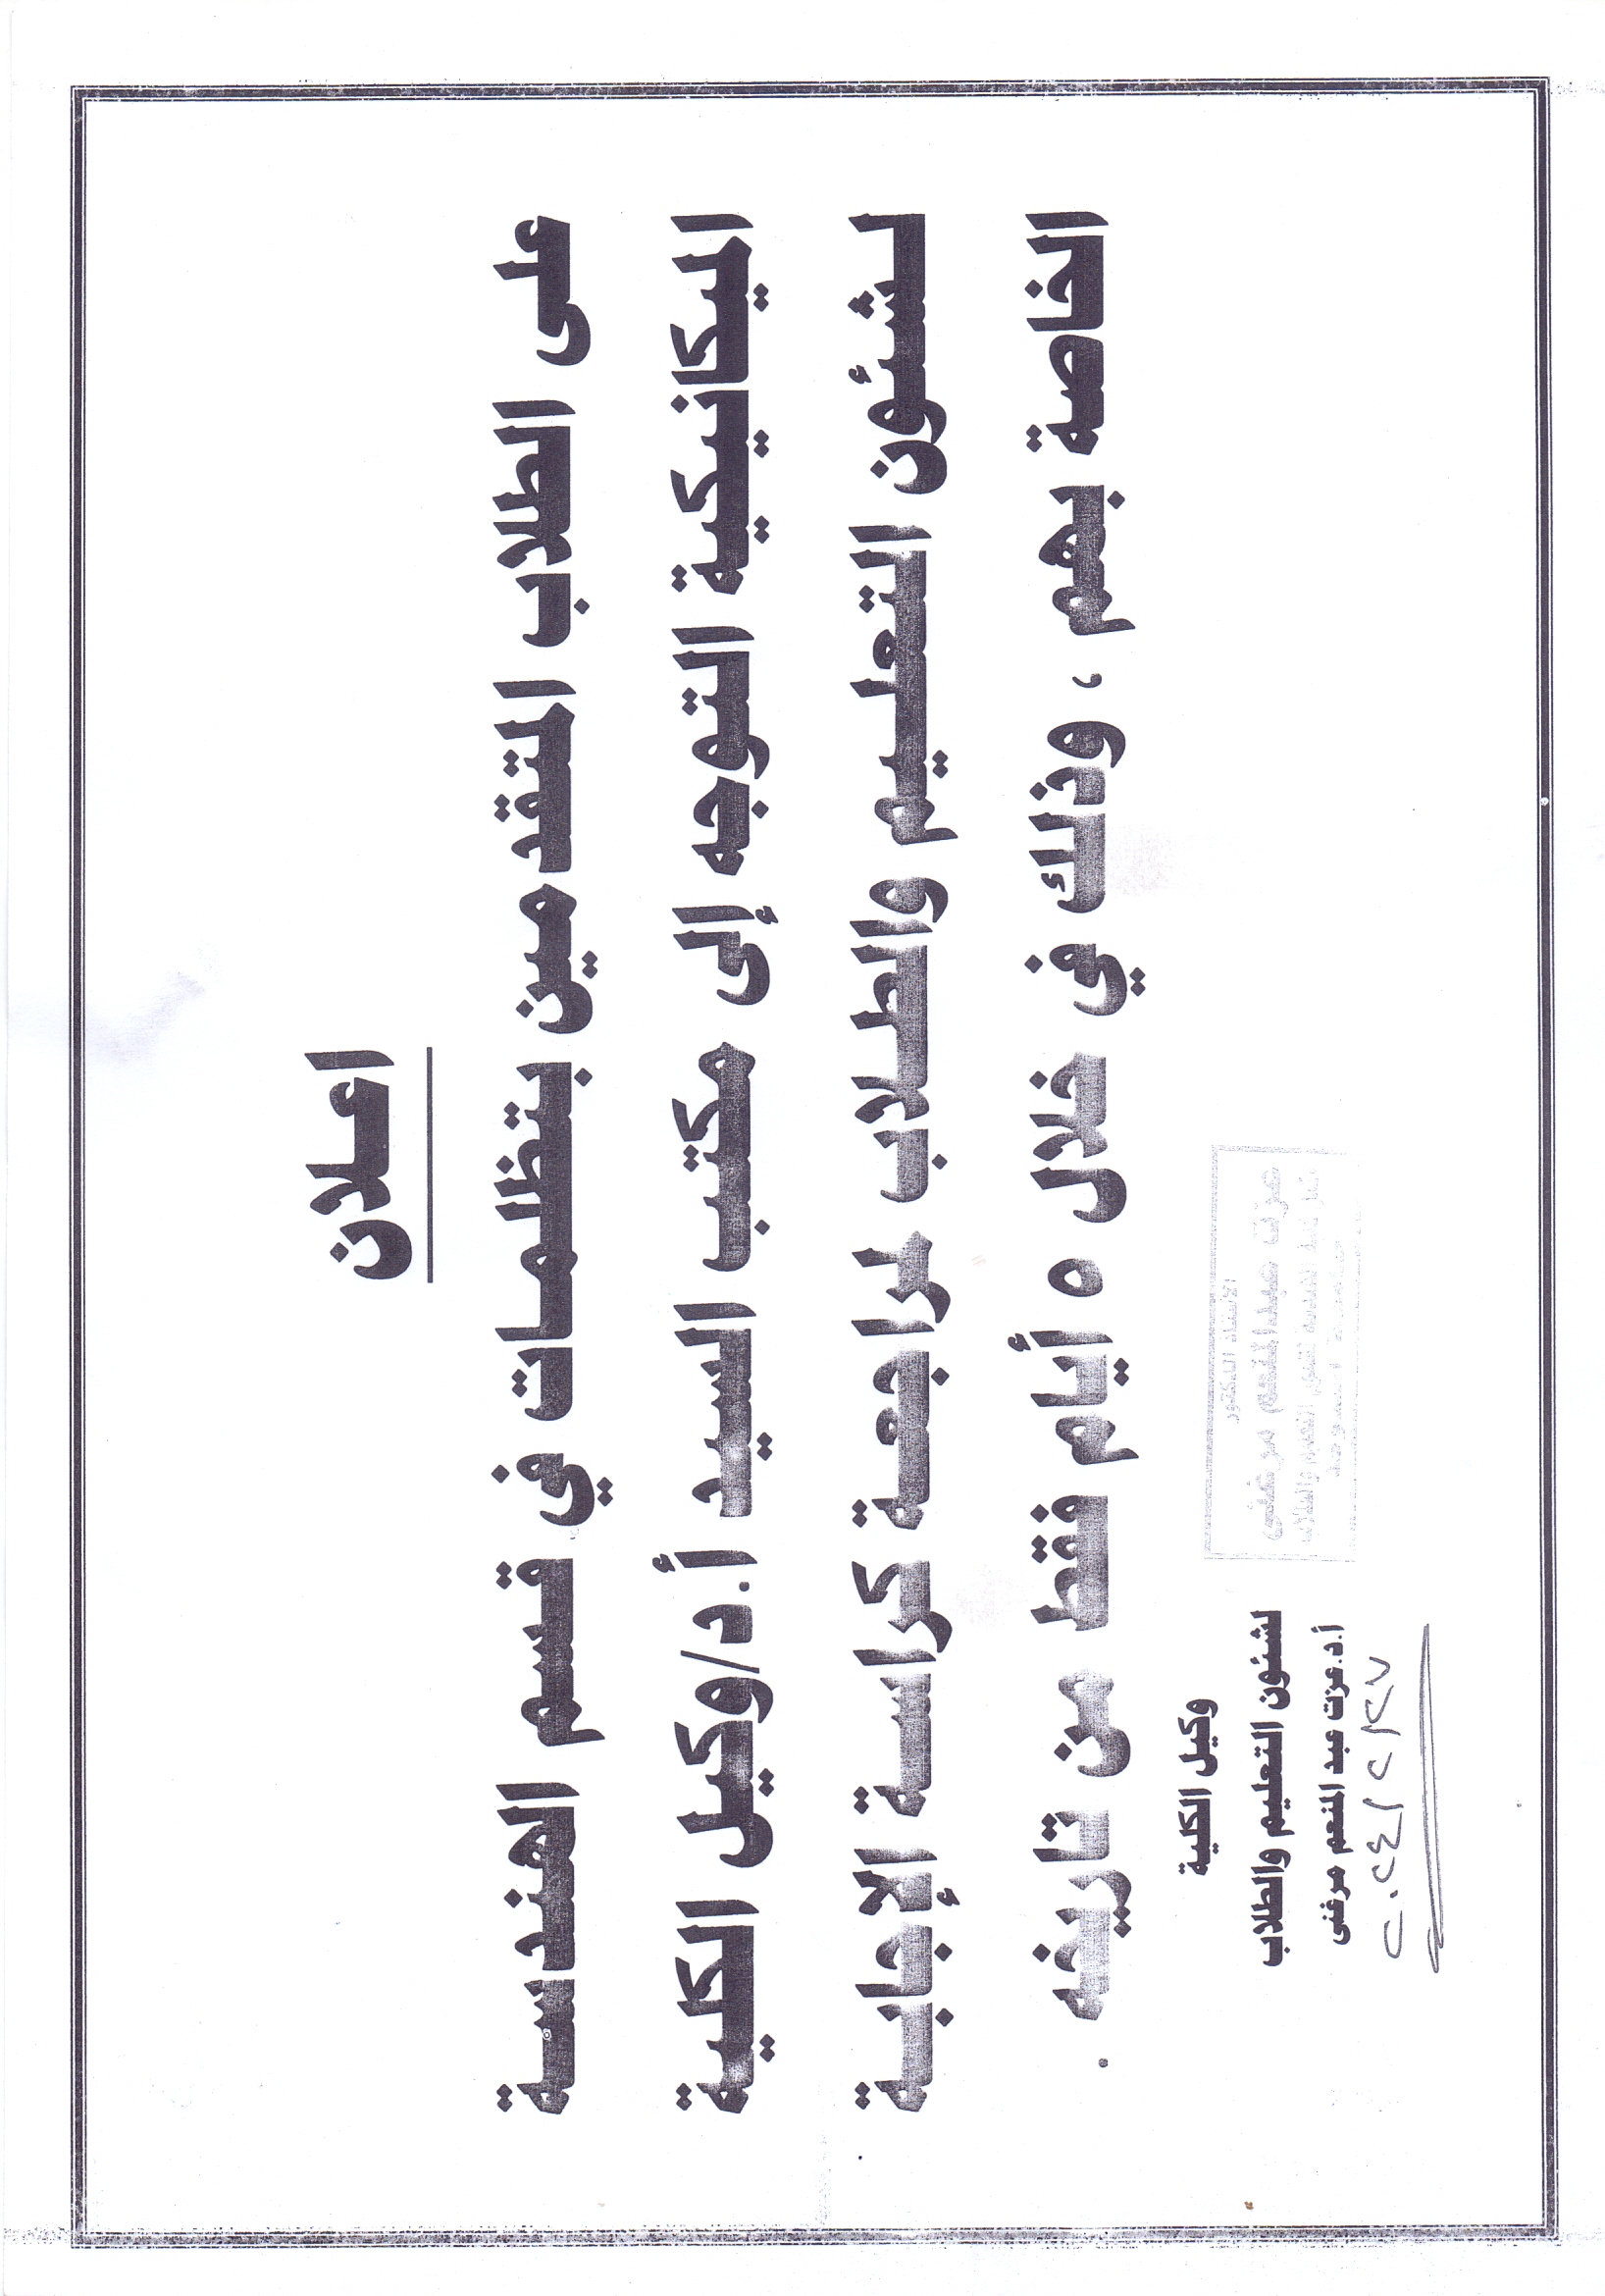 اعلان
على الطلاب المتقدمين بتظلمات في قسم الهندسة
الميكانيكية التوجه إلى مكتب السيد أ.د/وكيل الكلية
لشئون التعليم والطلاب لمراجعة كراسة الإجابة
الخاصة بهم ، وذلك في خلال ٥ أيام فقط من تاريخه .
الأستاذ الدكتور
عزت عبدالمنعم مرغنى
لشئون التعليم والطلاب
وكيل الكلية
لشئون التعليم والطلاب
أ.د.عزت عبد المنعم مرغنى